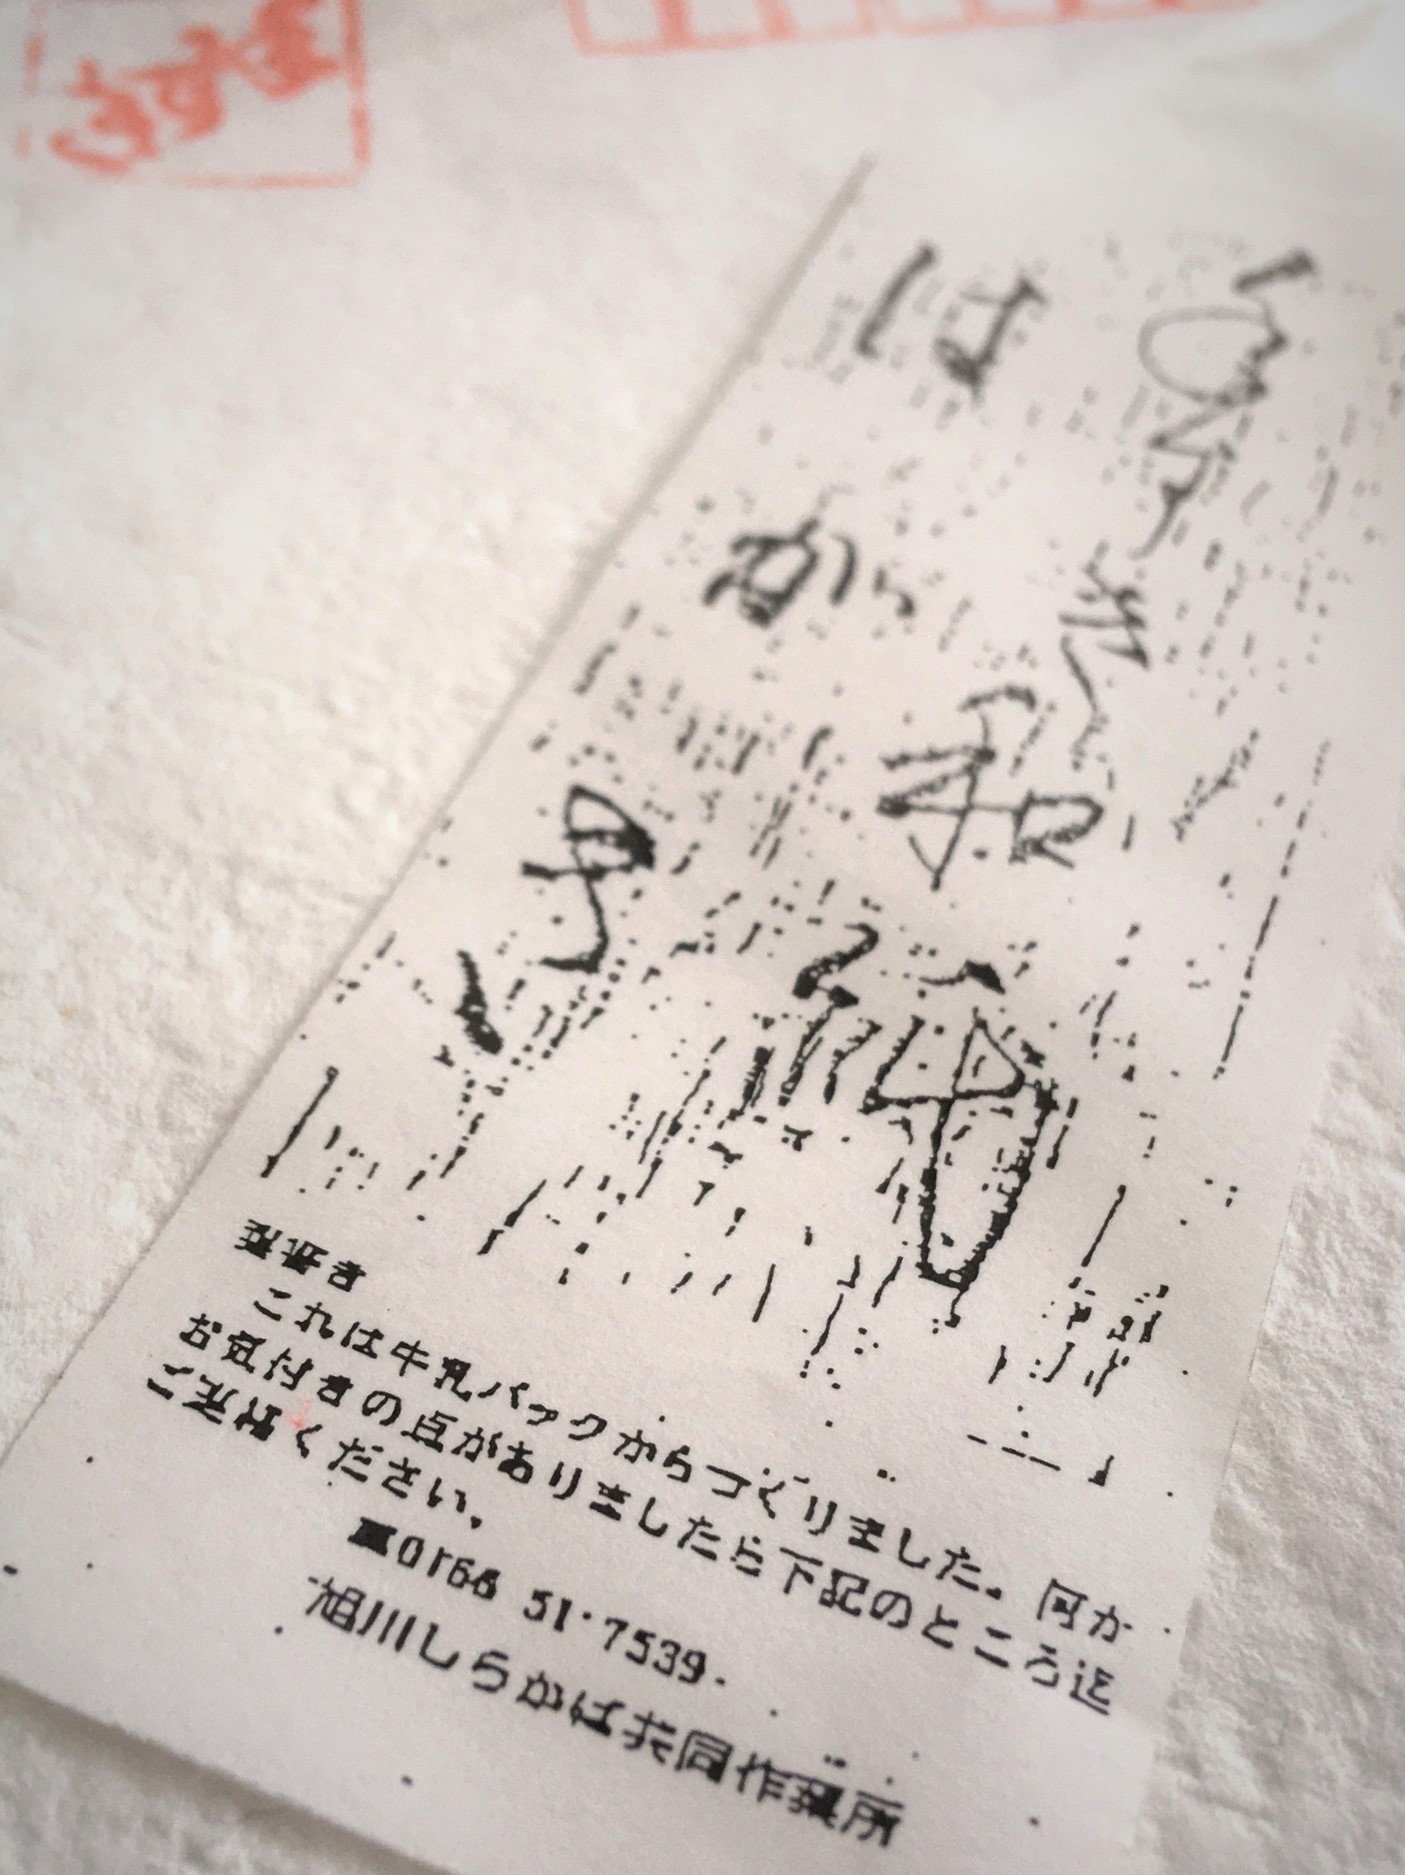 和紙
はがき
これは牛乳パックからつくりました。何か
お気付きの点がありましたら下記のところ迄
ご連絡ください。
☎0166 51・7539
旭川しらかば共同作業所